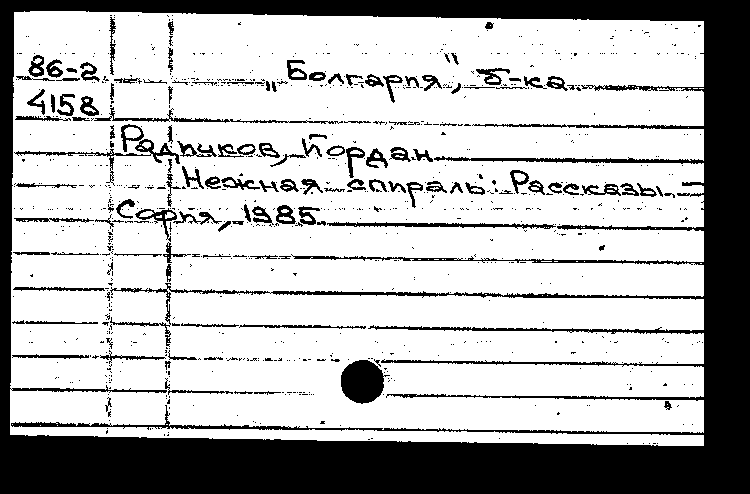 86-2 „Болгария", б-ка.
4158
Радичков, Йордан.
Нежная спираль: Рассказы. –
София, 1985.